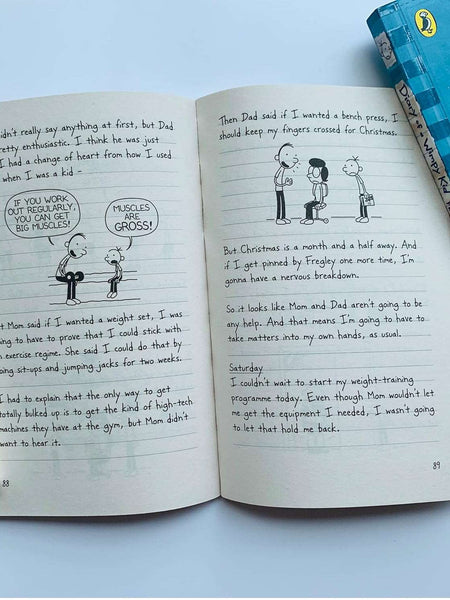 didn't really say anything at first, but Dad
pretty enthusiastic. I think he was just
I had a change of heart from how I used
when I was a kid -
IF YOU WORK
OUT REGULARLY,
YOU CAN GET
BIG MUSCLES!
MUSCLES
ARE
GROSS!
t Mom said if I wanted a weight set, I was
ing to have to prove that I could stick with
exercise regime. She said I could do that by
ing sit-ups and jumping jacks for two weeks.
I had to explain that the only way to get
totally bulked up is to get the kind of high-tech
machines they have at the gym, but Mom didn't
want to hear it.
88
Then Dad said if I wanted a bench press, I
should keep my fingers crossed for Christmas.
But Christmas is a month and a half away. And
if I get pinned by Fregley one more time, I'm
gonna have a nervous breakdown.
So it looks like Mom and Dad aren't going to be
any help. And that means I'm going to have to
take matters into my own hands, as usual.
Saturday
I couldn't wait to start my weight-training
programme today. Even though Mom wouldn't let
me get the equipment I needed, I wasn't going
to let that hold me back.
89
Diary of a Wimpy Kid